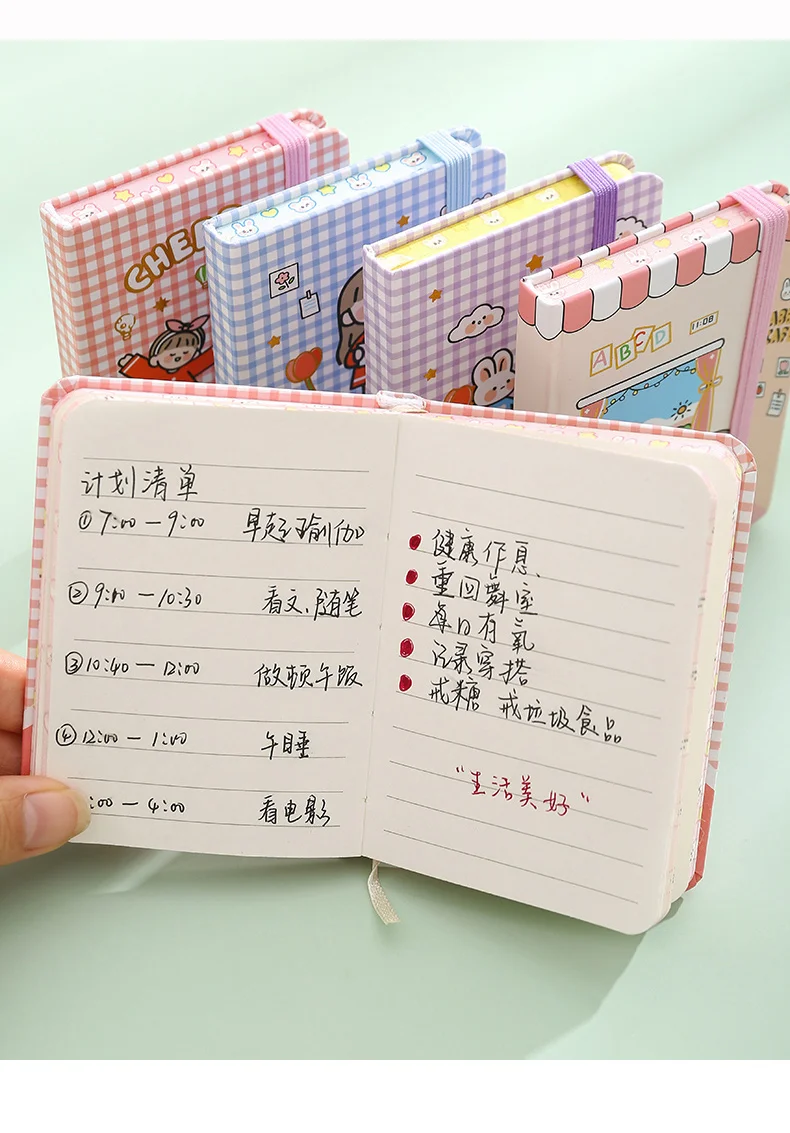 CHEE
ABCD
11:08
计划清单
①7:00—9:00 早起瑜伽
②9:00—10:30 看文、随笔
③10:40—12:00 做顿午饭
④12:00—1:00 午睡
:00—4:00 看电影
健康作息
重回舞室
每日有氧
记录穿搭
戒糖 戒垃圾食品
"生活美好"